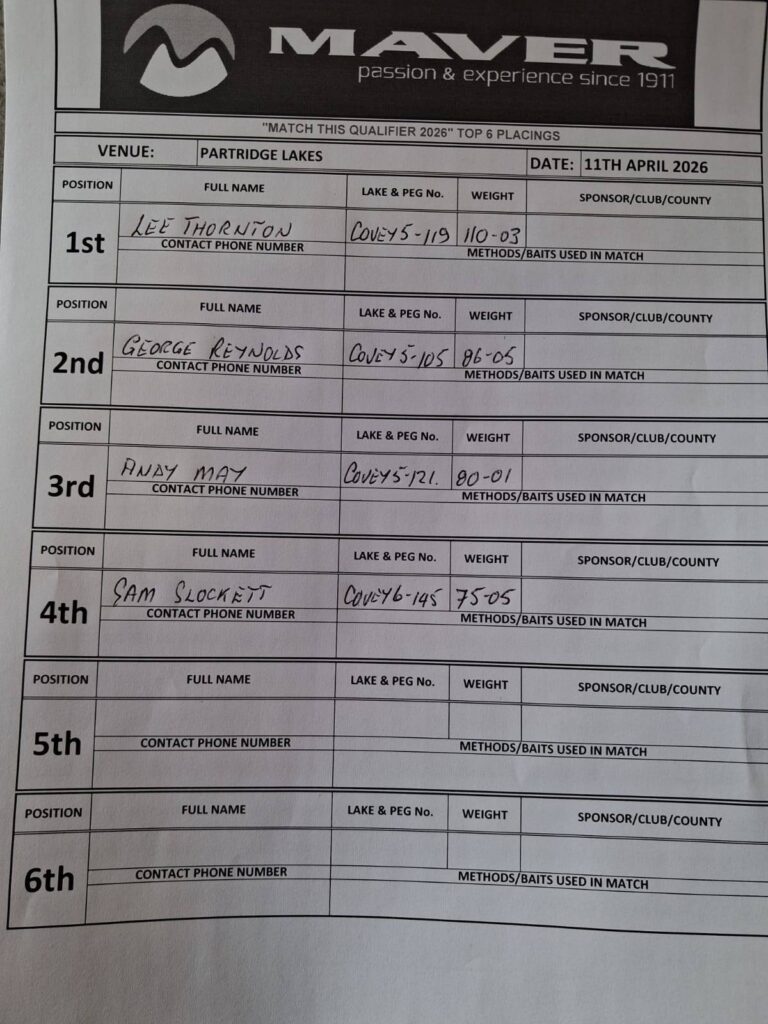 MAVER
passion & experience since 1911
"MATCH THIS QUALIFIER 2026" TOP 6 PLACINGS
VENUE: PARTRIDGE LAKES DATE: 11TH APRIL 2026
POSITION FULL NAME LAKE & PEG No. WEIGHT SPONSOR/CLUB/COUNTY
1st LEE THORNTON COVEY 5-119 110-03
CONTACT PHONE NUMBER METHODS/BAITS USED IN MATCH
POSITION FULL NAME LAKE & PEG No. WEIGHT SPONSOR/CLUB/COUNTY
2nd GEORGE REYNOLDS COVEY 5-105 86-05
CONTACT PHONE NUMBER METHODS/BAITS USED IN MATCH
POSITION FULL NAME LAKE & PEG No. WEIGHT SPONSOR/CLUB/COUNTY
3rd ANDY MAY COVEY 5-121. 80-01
CONTACT PHONE NUMBER METHODS/BAITS USED IN MATCH
POSITION FULL NAME LAKE & PEG No. WEIGHT SPONSOR/CLUB/COUNTY
4th SAM SLOCKETT COVEY 6-145 75-05
CONTACT PHONE NUMBER METHODS/BAITS USED IN MATCH
POSITION FULL NAME LAKE & PEG No. WEIGHT SPONSOR/CLUB/COUNTY
5th
CONTACT PHONE NUMBER METHODS/BAITS USED IN MATCH
POSITION FULL NAME LAKE & PEG No. WEIGHT SPONSOR/CLUB/COUNTY
6th
CONTACT PHONE NUMBER METHODS/BAITS USED IN MATCH